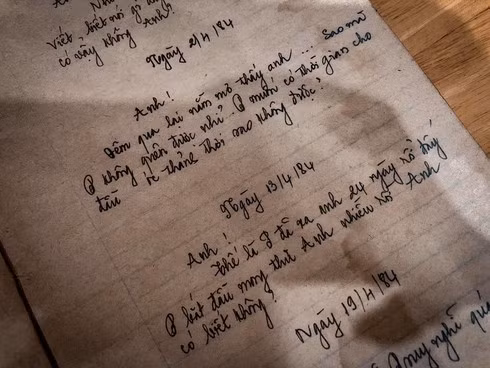 Viết, biết nói gì
có vậy không Anh?
Ngày 2/4/84
Anh!
Đêm qua lại nằm mơ thấy anh ... Sao mà
không quên được nhỉ. muốn có thời gian cho
đầu thảnh thơi sao không được?
Ngày 13/4/84
Anh!
Thế là đã xa anh 24 ngày rồi đấy
bắt đầu mong thư Anh nhiều rồi Anh
có biết không?
Ngày 19/4/84
suy nghĩ